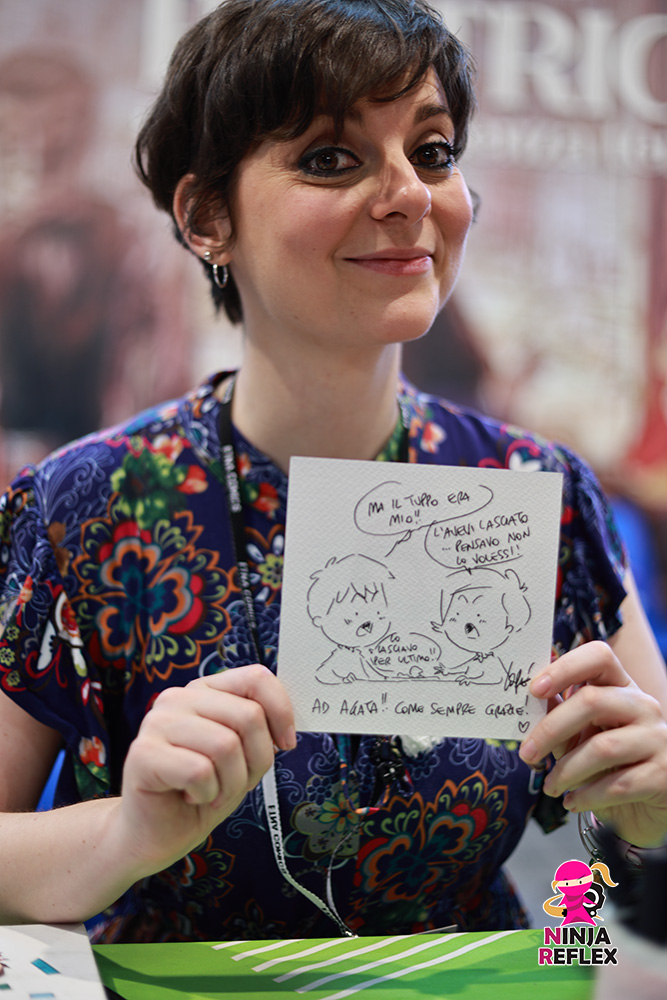 TRIC
MA IL TUPPO ERA
MIO!!
L'AVEVI LASCIATO
... PENSAVO NON
LO VOLESSI!
LO
LASCIAVO
PER ULTIMO!
AD AGATA!! COME SEMPRE GRAZIE!
NINJA
REFLEX